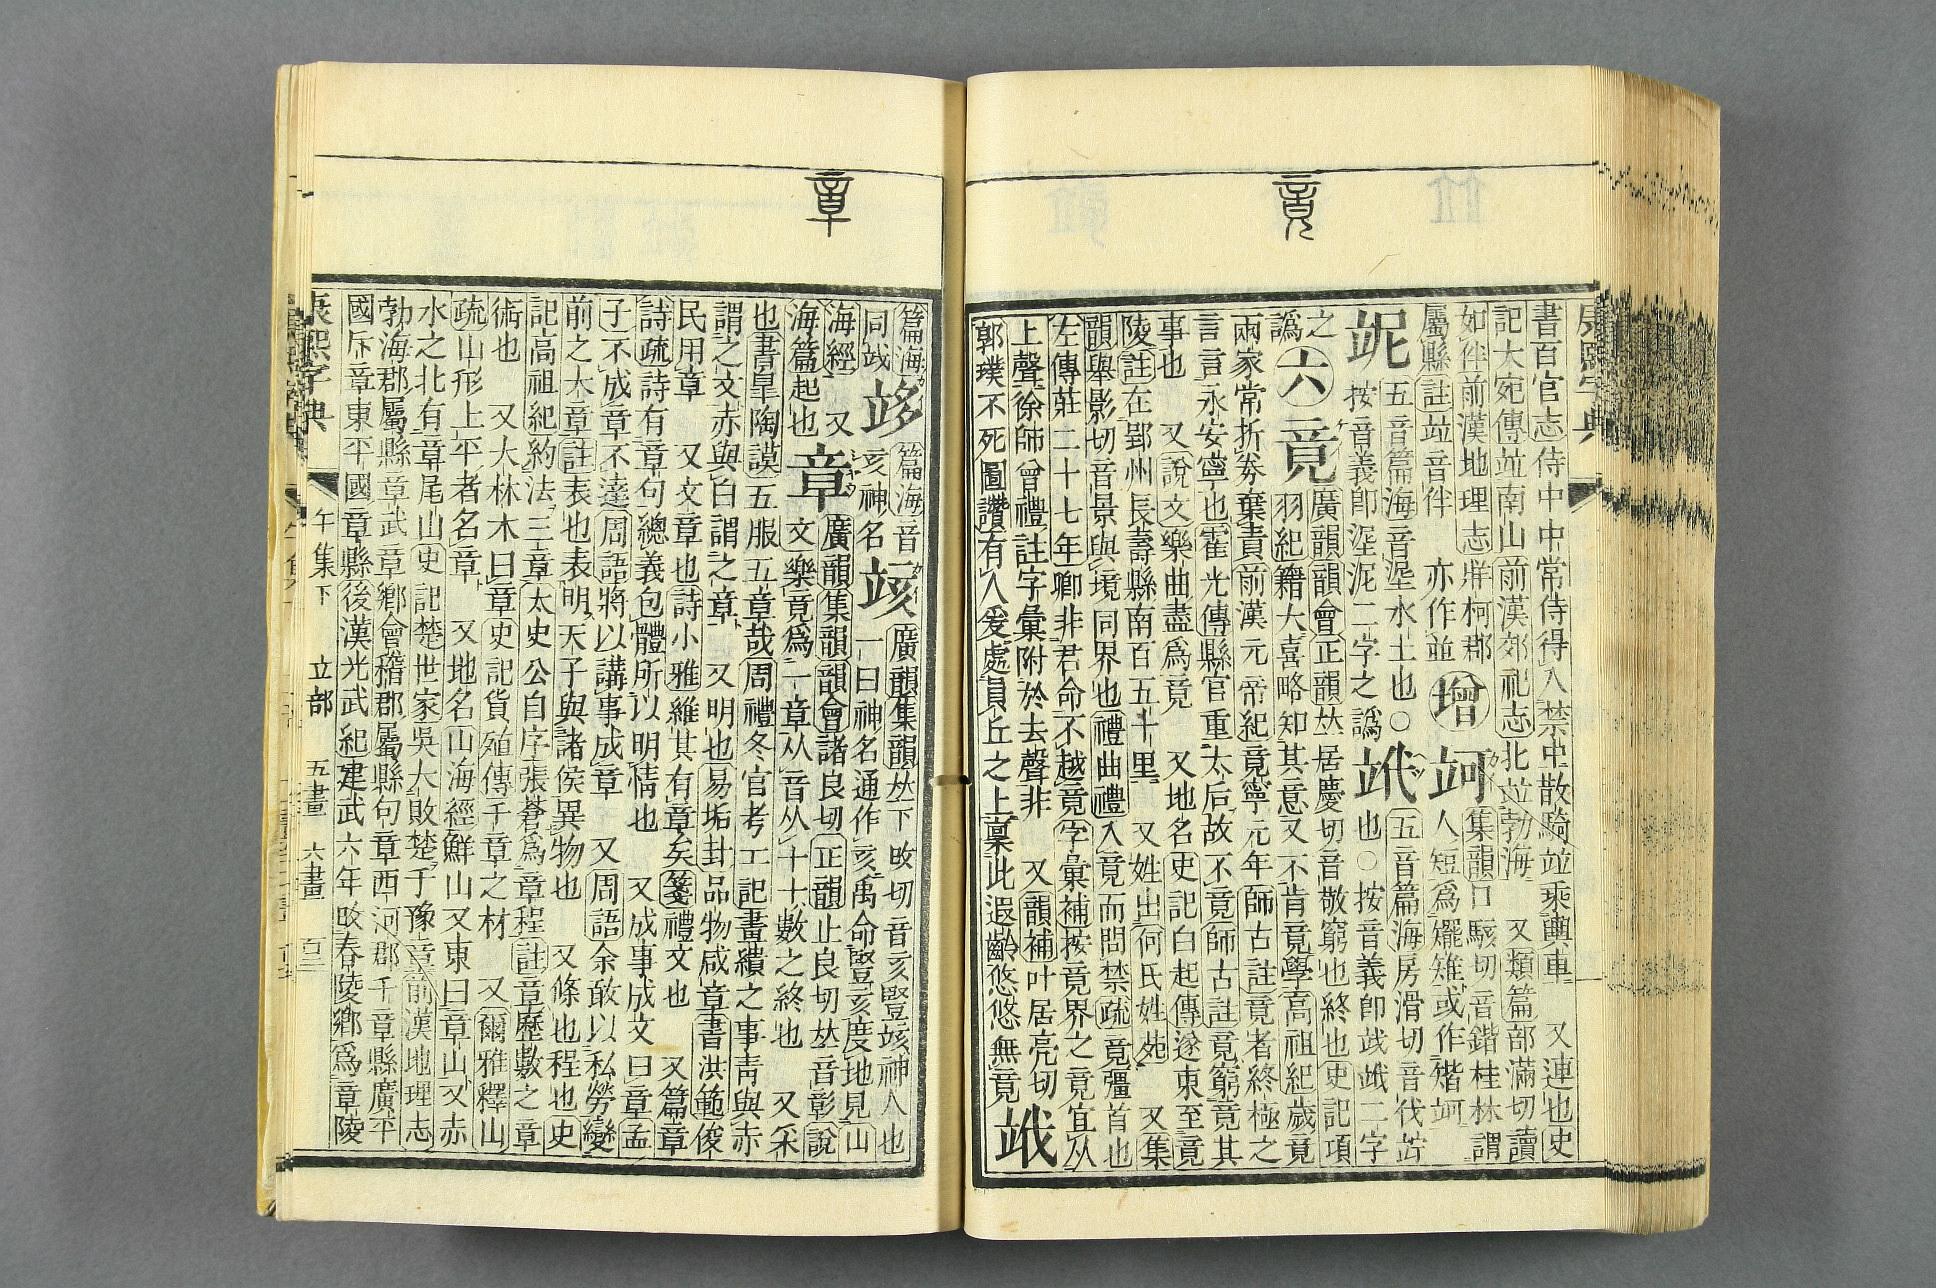 章
竟
康熙字典
書百官志侍中中常侍得入禁中散騎竝乘輿車 又連也史
記大宛傳竝南山前漢郊祀志北竝勃海 又類篇部滿切讀
如伴前漢地理志牂柯郡
屬縣註竝音伴 亦作並 增
集韻口駭切音鍇桂林謂
人短爲 或作
五音篇海音埿水土也○
按音義卽埿泥二字之譌
五音篇海房滑切音伐
也○按音義卽 二字
之
譌 六 竟
廣韻韻會正韻𠀤居慶切音敬窮也終也史記項
羽紀籍大喜略知其意又不肯竟學高祖紀歲竟
兩家常折劵棄責前漢元帝紀竟寧元年師古註竟者終極之
言言永安寧也霍光傳縣官重太后故不竟師古註竟窮竟其
事也 又說文樂曲盡爲竟 又地名史記白起傳遂東至竟
陵註在郢州長壽縣南百五十里 又姓出何氏姓苑 又集
韻舉影切音景與境同界也禮曲禮入竟而問禁疏竟疆首也
左傳莊二十七年卿非君命不越竟字彙補按竟界之竟宜从
上聲徐師曾禮註字彙附於去聲非 又韻補叶居亮切
郭璞不死圖讚有人爰處員丘之上稟此遐齡悠悠無竟
篇海
同
篇海音
亥神名
竢
廣韻集韻𠀤下改切音亥豎竢神人也
一曰神名通作亥禹命豎亥度地見山
海經 又
海篇起也 章
廣韻集韻韻會諸良切正韻止良切𠀤音彰說
文樂竟爲一章从音从十十數之終也 又采
也書皐陶謨五服五章哉周禮冬官考工記畫繢之事靑與赤
謂之文赤與白謂之章 又明也易垢卦品物咸章書洪範俊
民用章 又文章也詩小雅維其有章矣箋禮文也 又篇章
詩疏詩有章句總義包體所以明情也 又成事成文曰章孟
子不成章不達周語將以講事成章 又周語余敢以私勞變
前之大章註表也表明天子與諸侯異物也 又條也程也史
記高祖紀約法三章太史公自序張蒼爲章程註章歷數之章
術也 又大林木曰章史記貨殖傳千章之材 又爾雅釋山
疏山形上平者名章 又地名山海經鮮山又東曰章山又赤
水之北有章尾山史記楚世家吳大敗楚于豫章前漢地理志
勃海郡屬縣章武章鄉會稽郡屬縣句章西河郡千章縣廣平
國斥章東平國章縣後漢光武紀建武六年改舂陵鄉爲章陵
康熙字典 午集下 立部 五畫 六畫